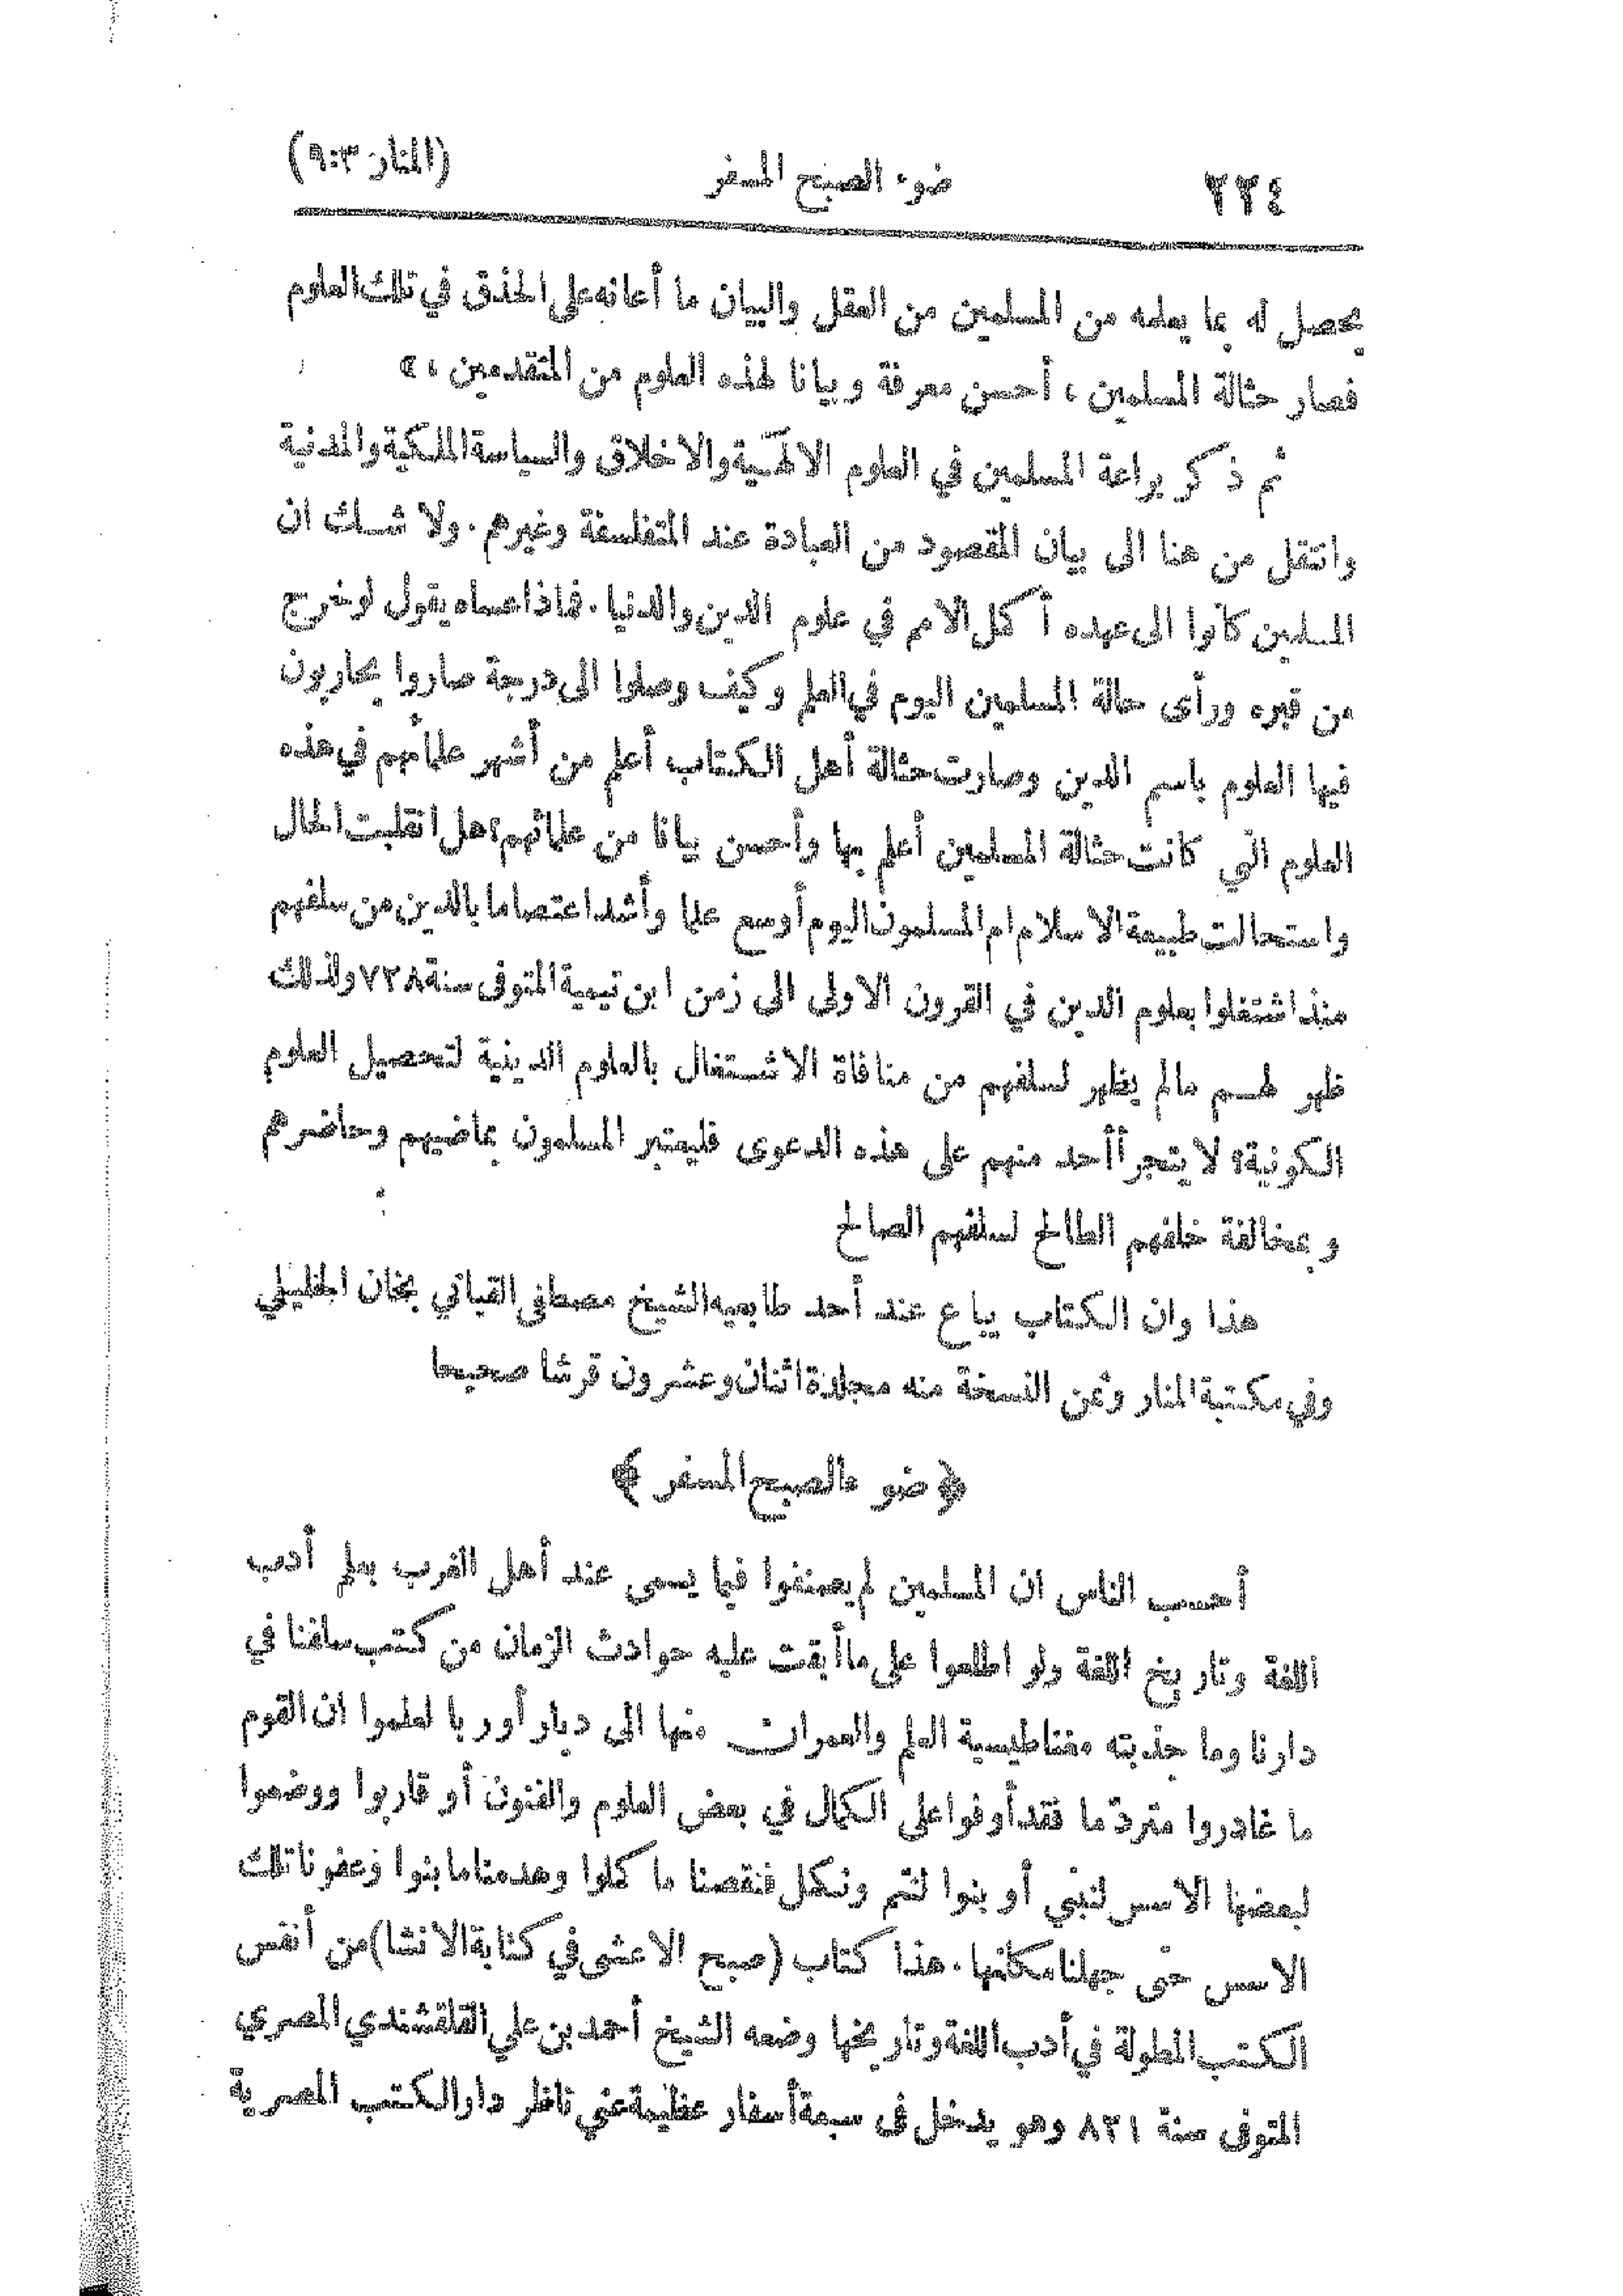 ٢٢٤ ضوء الصبح المسفر (المنار ٣:٩)
يحصل له بما يعلمه من المسلمين من العقل والبيان ما أعانه على الحذق في تلك العلوم
فصار حثالة المسلمين ، أحسن معرفة وبيانا لهذه العلوم من المتقدمين ، »
ثم ذكر براعة المسلمين في العلوم الالهية والاخلاق والسياسة الملكية والمدنية
وانتقل من هنا الى بيان المقصود من العبادة عند المتفلسفة وغيرهم . ولا شك ان
المسلمين كانوا الى عهده أكمل الامم في علوم الدين والدنيا . فماذا عساه يقول لو خرج
من قبره ورأى حالة المسلمين اليوم في العلم وكيف وصلوا الى درجة صاروا يحاربون
فيها العلوم باسم الدين وصارت حثالة أهل الكتاب أعلم من أشهر علمائهم في هذه
العلوم التي كانت حثالة المسلمين أعلم بها وأحسن بيانا من علمائهم؟ هل انقلبت الحال
واستحالت طبيعة الاسلام ام المسلمون اليوم أوسع علما وأشد اعتصاما بالدين من سلفهم
منذ اشتغلوا بعلوم الدين في القرون الاولى الى زمن ابن تيمية المتوفى سنة ٧٢٨ ولذلك
ظهر لهم مالم يظهر لسلفهم من منافاة الاشتغال بالعلوم الدينية لتحصيل العلوم
الكونية؟ لا يتجرأ أحد منهم على هذه الدعوى فليعتبر المسلمون بماضيهم وحاضرهم
وبمخالفة خلفهم الطالح لسلفهم الصالح
هذا وان الكتاب يباع عند أحد طابعيه الشيخ مصطفى القباني بخان الخليلي
وفي مكتبة المنار وثمن النسخة منه مجلدة اثنان وعشرون قرشا صحيحا
﴿ ضوء الصبح المسفر ﴾
أحسب الناس ان المسلمين لم يصنفوا فيما يسمى عند أهل الغرب بعلم أدب
اللغة وتاريخ اللغة ولو اطلعوا على ما أبقت عليه حوادث الزمان من كتب سلفنا في
دارنا وما جذبته مغناطيسية العلم والعمران منها الى ديار أوربا لعلموا ان القوم
ما غادروا متردّما فقد أوفوا على الكمال في بعض العلوم والفنون أو قاربوا ووضعوا
لبعضها الاسس لنبني أو بنوا لنتم ونكمل فنقصنا ما كملوا وهدمنا ما بنوا وعفونا تلك
الاسس حتى جهلنا مكانها . هذا كتاب (صبح الاعشى في كتابة الانشا) من أنفس
الكتب المطولة في أدب اللغة وتاريخها وضعه الشيخ أحمد بن علي القلقشندي المصري
المتوفى سنة ٨٢١ وهو يدخل في سبعة أسفار عظيمة عني ناظر دار الكتب المصرية